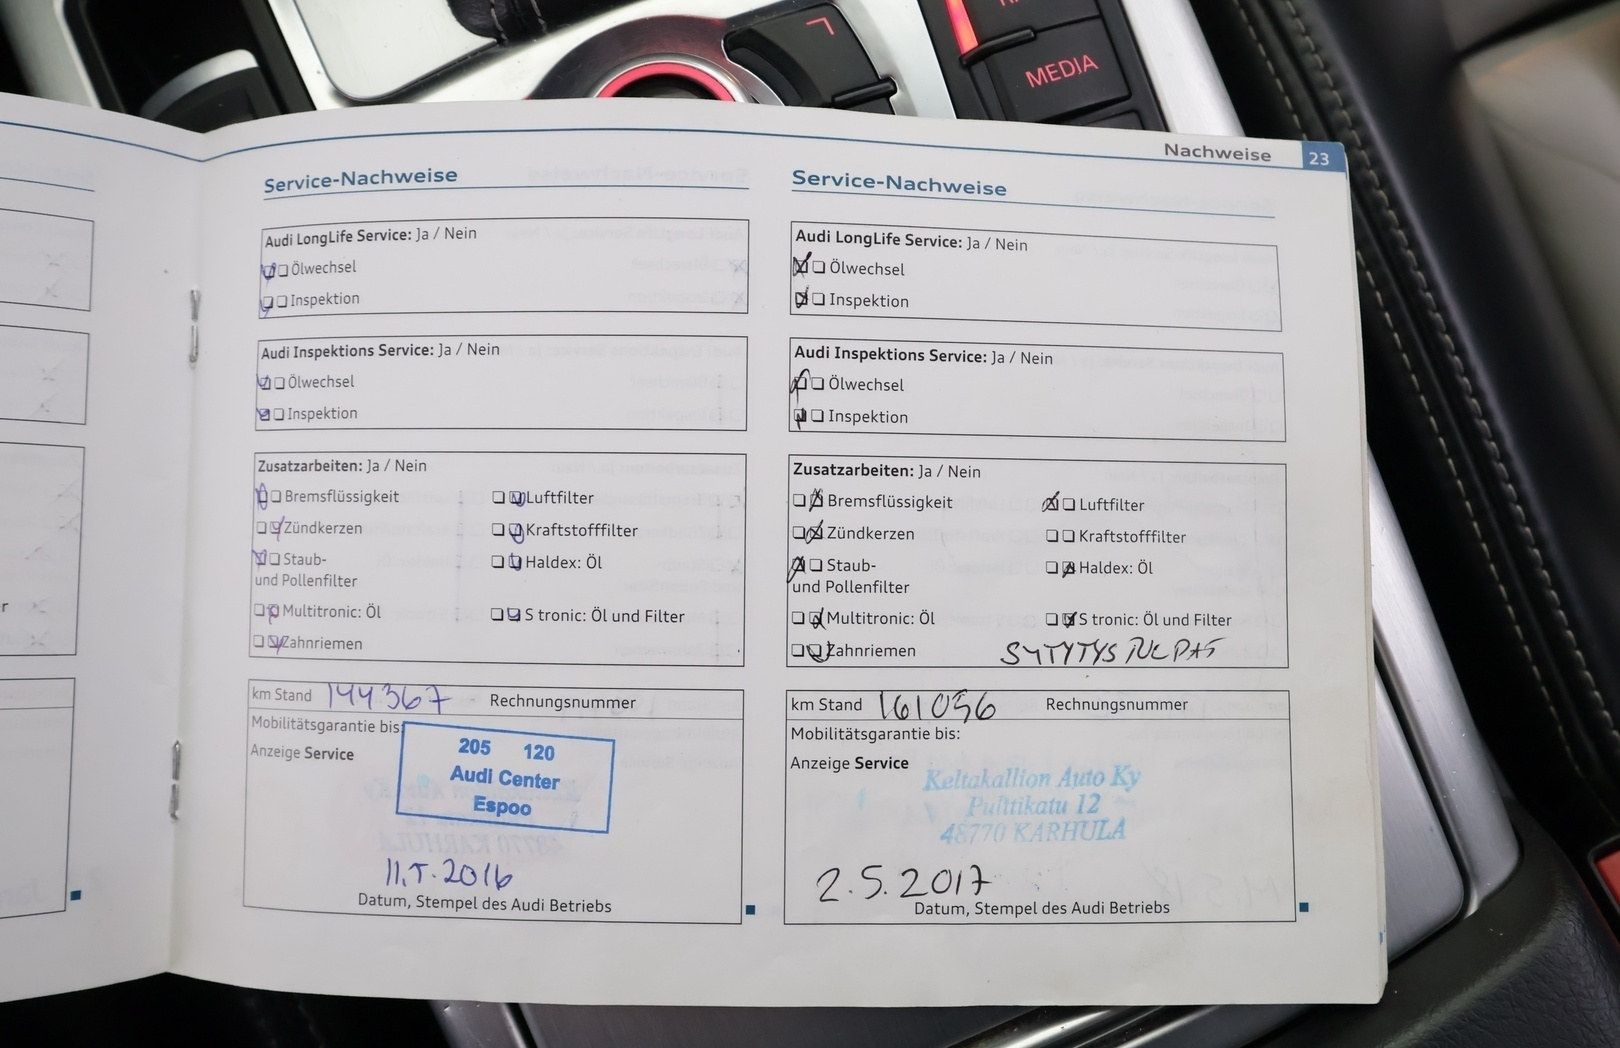 MEDIA
Nachweise 23
Service-Nachweise
Audi LongLife Service: Ja / Nein
Ölwechsel
Inspektion
Audi Inspektions Service: Ja / Nein
Ölwechsel
Inspektion
Zusatzarbeiten: Ja / Nein
Bremsflüssigkeit Luftfilter
Zündkerzen Kraftstofffilter
Staub- Haldex: Öl
und Pollenfilter
Multitronic: Öl S tronic: Öl und Filter
Zahnriemen
km Stand 144367 Rechnungsnummer
Mobilitätsgarantie bis:
Anzeige Service
205 120
Audi Center
Espoo
2016
Datum, Stempel des Audi Betriebs
Service-Nachweise
Audi LongLife Service: Ja / Nein
Ölwechsel
Inspektion
Audi Inspektions Service: Ja / Nein
Ölwechsel
Inspektion
Zusatzarbeiten: Ja / Nein
Bremsflüssigkeit Luftfilter
Zündkerzen Kraftstofffilter
Staub- Haldex: Öl
und Pollenfilter
Multitronic: Öl S tronic: Öl und Filter
Zahnriemen SYTYTYSTULPAT
km Stand 161056 Rechnungsnummer
Mobilitätsgarantie bis:
Anzeige Service
Keltakallion Auto Ky
Pulttikatu 12
48770 KARHULA
2.5.2017
Datum, Stempel des Audi Betriebs